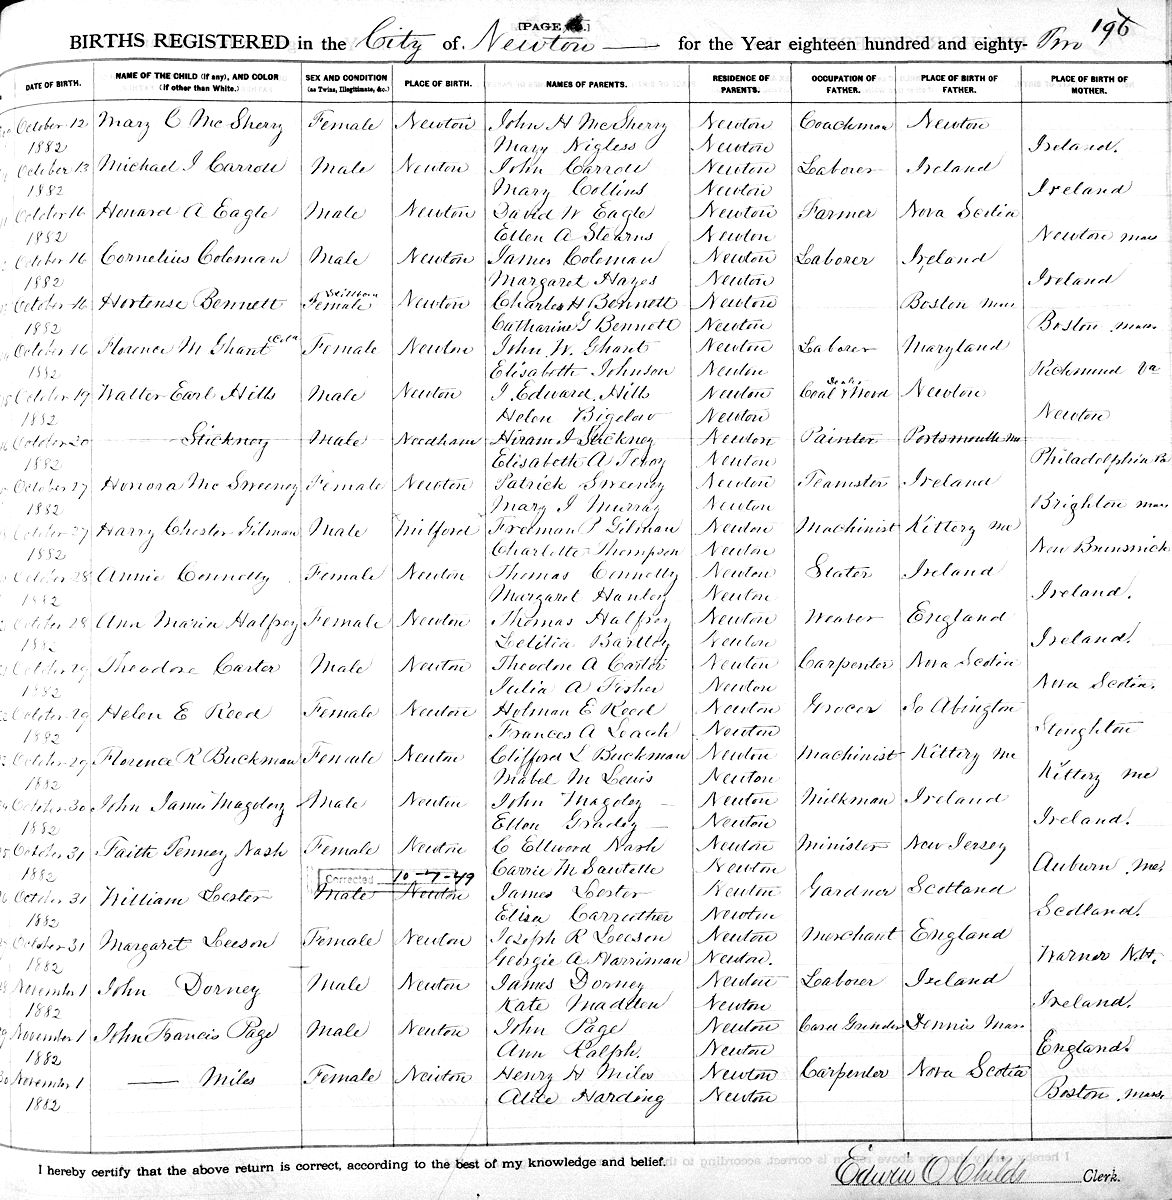 [PAGE .]
196
BIRTHS REGISTERED in the City of Newton for the Year eighteen hundred and eighty- Two
DATE OF BIRTH. NAME OF THE CHILD (if any), AND COLOR (if other than White.) SEX AND CONDITION (as Twins, Illegitimate, &c.) PLACE OF BIRTH. NAMES OF PARENTS. RESIDENCE OF PARENTS. OCCUPATION OF FATHER. PLACE OF BIRTH OF FATHER. PLACE OF BIRTH OF MOTHER.
October 12 Mary C McSherry Female Newton John H McSherry Newton Coachman Newton
1882 Mary Nigless Newton Ireland.
October 13 Michael J Carroll Male Newton John Carroll Newton Laborer Ireland
1882 Mary Collins Newton Ireland
October 16 Howard A Eagle Male Newton David W Eagle Newton Farmer Nova Scotia
1882 Ellen A Stearns Newton Newton mass
October 16 Cornelius Coleman Male Newton James Coleman Newton Laborer Ireland
1882 Margaret Hayes Newton Ireland
October 16 Hortense Bennett Stillborn Female Newton Charles H Bennett Newton Boston mass
1882 Catharine G Bennett Newton Boston mass.
October 16 Florence M Ghant Col'd Female Newton John W. Ghant Newton Laborer Maryland
1882 Elisabeth Johnson Newton Richmond Va
October 19 Walter Earl Hills Male Newton J Edward Hills Newton Coal & Wood Newton
1882 Helen Bigelow Newton Newton
October 20 — Stickney Male Needham Hiram J Stickney Newton Painter Portsmouth
1882 Elisabeth A Newton Philadelphia Pa
October 27 Honora McSweeney Female Newton Patrick Sweeney Newton Teamster Ireland
1882 Mary J Murray Newton Brighton mass
October 27 Harry Chester Gilman Male Milford Freeman P Gilman Newton Machinist Kittery Me
1882 Charlotte Thompson Newton New Brunswick
October 28 Annie Connolly Female Newton Thomas Connolly Newton Slater Ireland
1882 Margaret Hanley Newton Ireland.
October 28 Ann Maria Halfrey Female Newton Thomas Halfrey Newton Weaver England
1882 Letitia Bartley Newton Ireland.
October 29 Theodore Carter Male Newton Theodore A Carter Newton Carpenter Nova Scotia
1882 Julia A Fisher Newton Nova Scotia.
October 29 Helen E Reed Female Newton Holman E Reed Newton Grocer So Abington
1882 Frances A Leach Newton Stoughton
October 29 Florence R Buckman Female Newton Clifford L Buckman Newton Machinist Kittery Me
1882 Mabel M Lewis Newton Kittery Me
October 30 John James Magdey Male Newton John Magdey — Newton Milkman Ireland
1882 Ellen Gradey — Newton Ireland.
October 31 Faith Tenney Nash Female Newton C Ellwood Nash Newton Minister New Jersey
1882 Corrected 10-7-49 Carrie M Sawtelle Newton Auburn Me.
October 31 William Lester Male Newton James Lester Newton Gardner Scotland
1882 Eliza Carruther Newton Scotland.
October 31 Margaret Leeson Female Newton Joseph R Leeson Newton Merchant England
1882 Georgie A Harriman Newton. Warner N.H.
November 1 John Dorney Male Newton James Dorney Newton Laborer Ireland
1882 Kate Madden Newton Ireland.
November 1 John Francis Page Male Newton John Page Newton Card Grinder Dennis Mass
1882 Ann Ralph. Newton England.
November 1 — Miles Female Newton Henry H Miles Newton Carpenter Nova Scotia
1882 Alice Harding Newton Boston Mass
I hereby certify that the above return is correct, according to the best of my knowledge and belief.
Edwin O Childs Clerk.